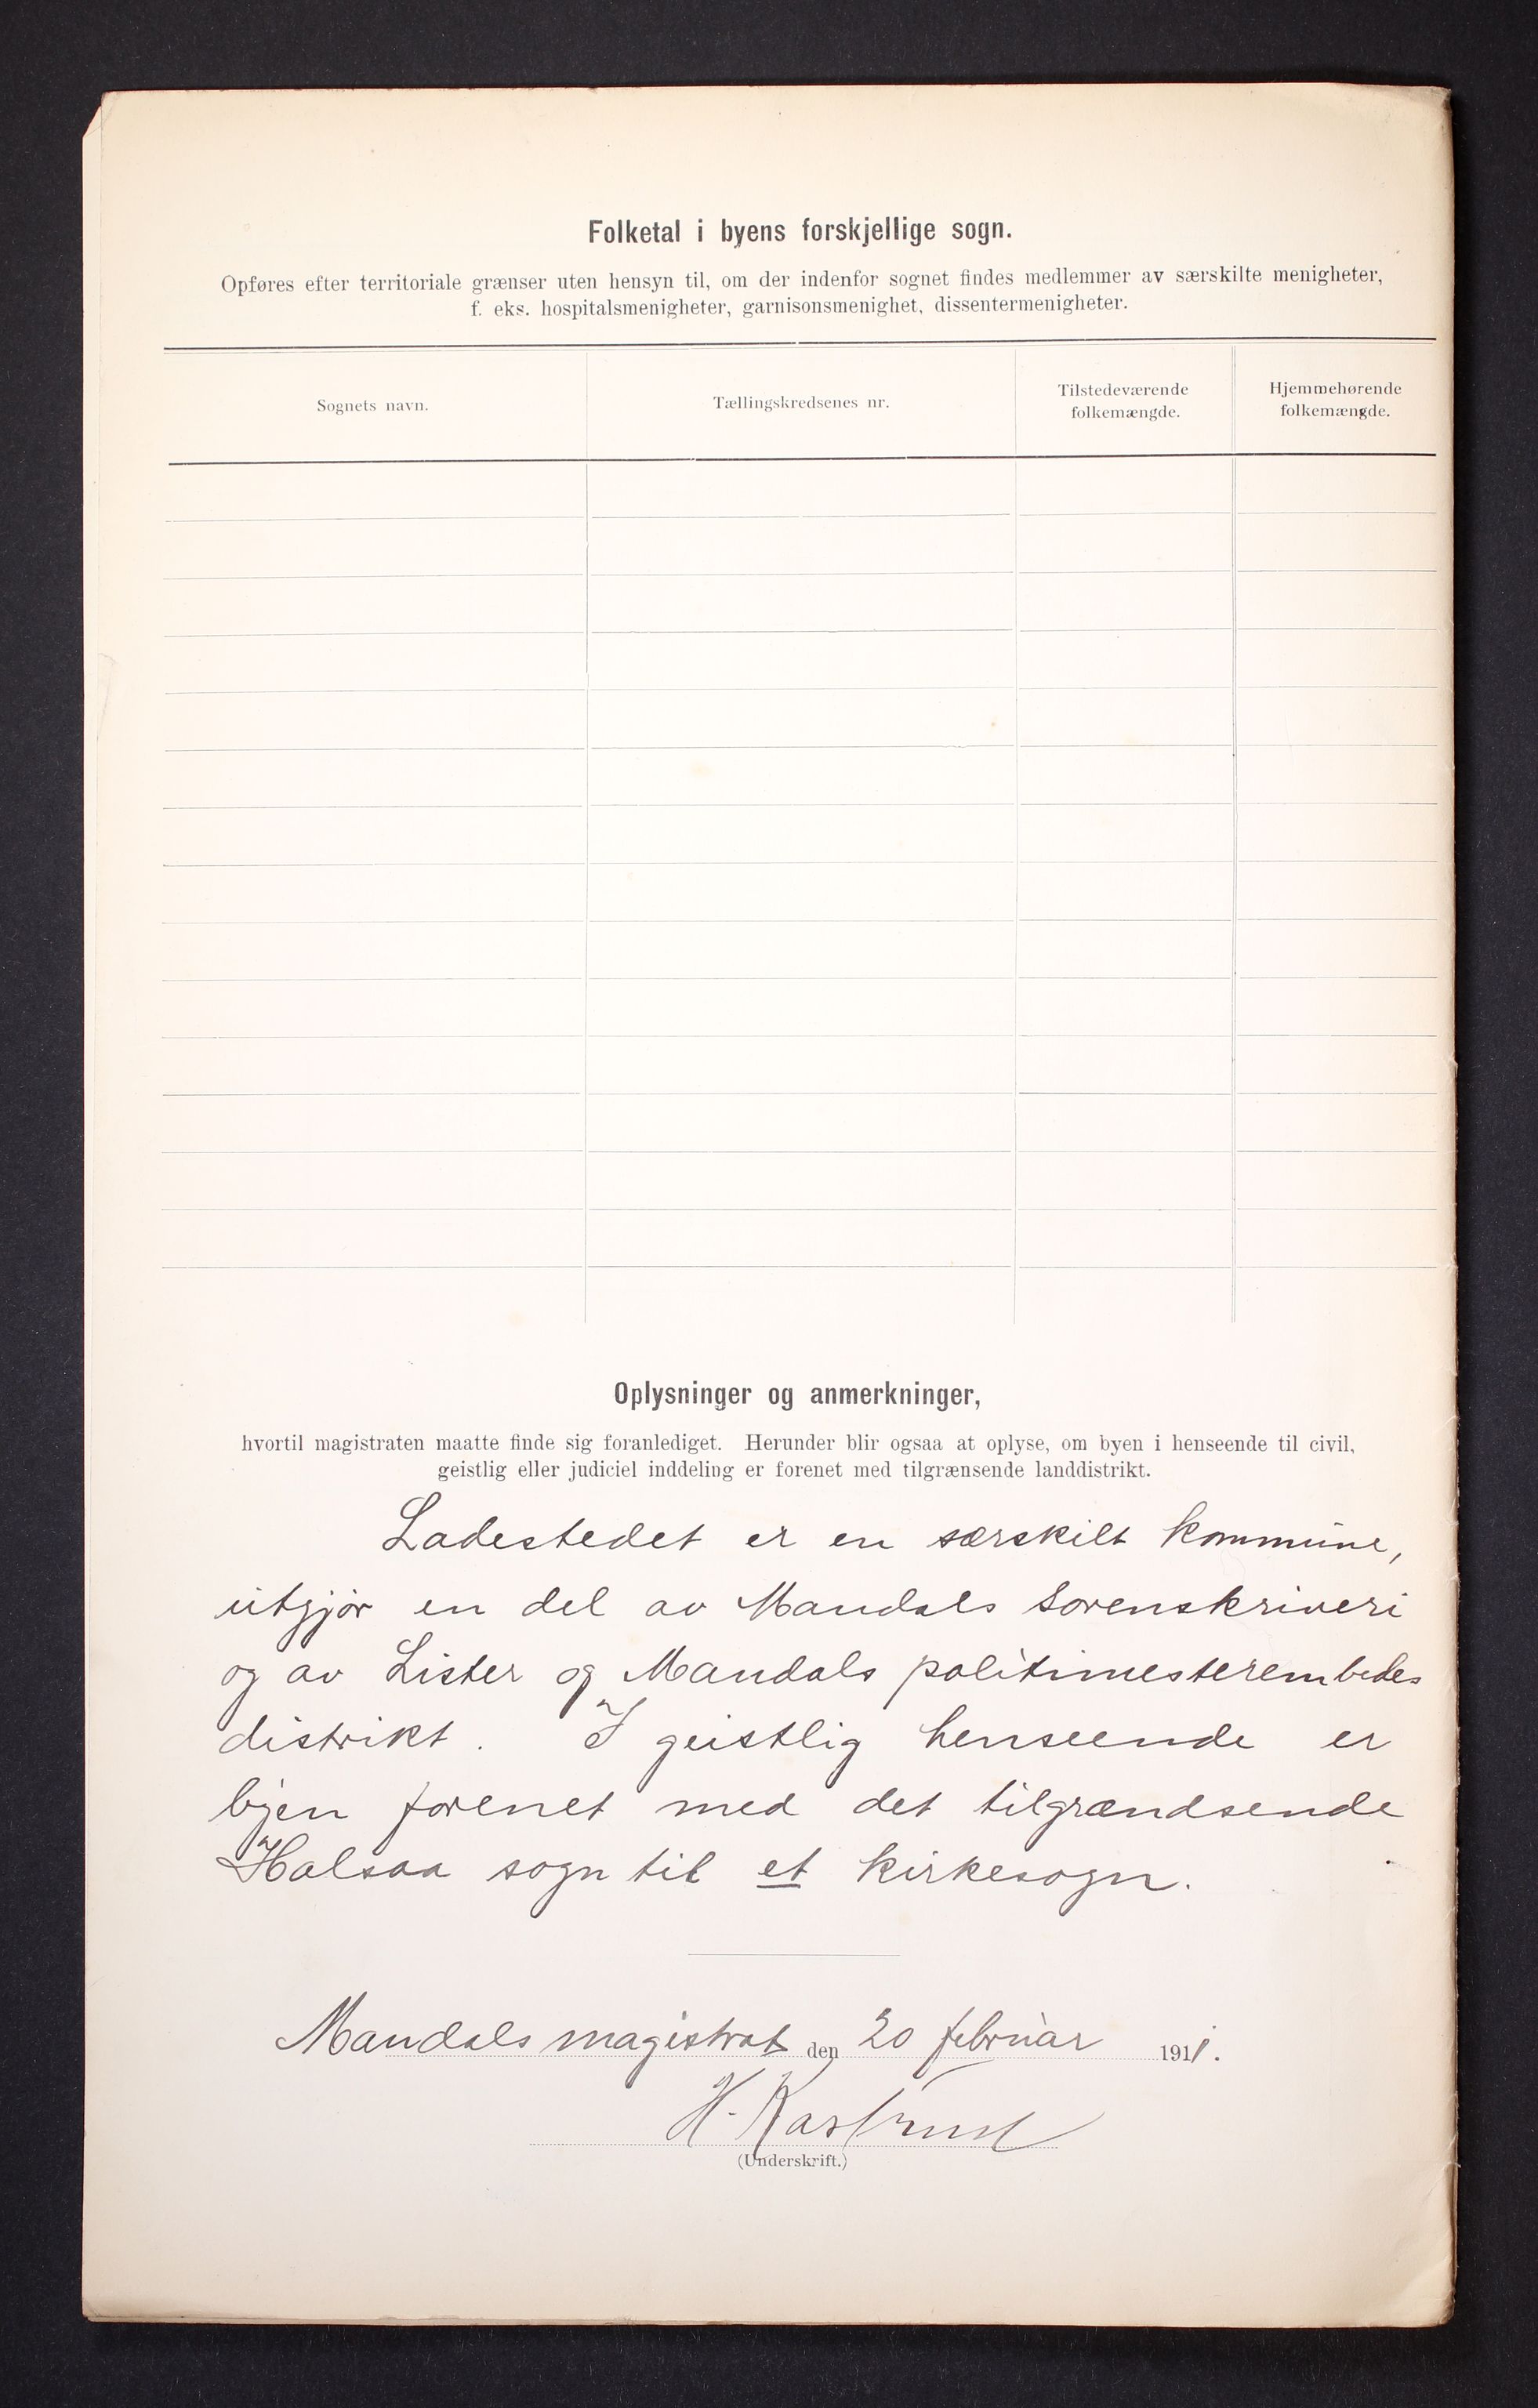 Folketal i byens forskjellige sogn.
Opføres efter territoriale grænser uten hensyn til, om der indenfor sognet findes medlemmer av særskilte menigheter,
f. eks. hospitalsmenigheter, garnisonsmenighet, dissentermenigheter.
Sognets navn.
Tællingskredsenes nr.
Tilstedeværende
folkemængde.
Hjemmehørende
folkemængde.
Oplysninger og anmerkninger,
hvortil magistraten maatte finde sig foranlediget. Herunder blir ogsaa at oplyse, om byen i henseende til civil,
geistlig eller judiciel inddeling er forenet med tilgrænsende landdistrikt.
Ladestedet er en særskilt kommune,
utgjør en del av Mandals Sorenskriveri
og av Lister og Mandals politimesterembedes
distrikt. I geistlig henseende er
byen forenet med det tilgrændsende
Halsaa sogn til et kirkesogn.
Mandals magistrat den 20 februar 1911.
H.
(Underskrift.)